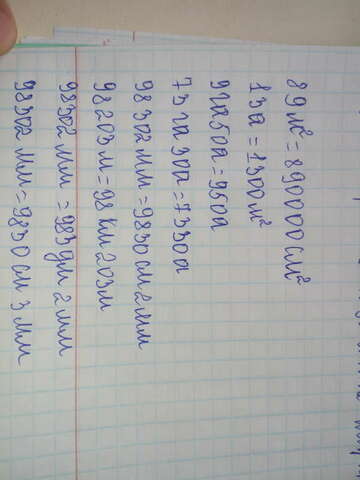 89 м² = 890000 см²
13а = 1300 м²
9га50а = 950а
73га30а = 7330а
98302 мм = 9830 см 2 мм
98203 м = 98 км 203 м
98302 мм = 983 дм 2 мм
98302 мм = 9830 см 3 мм